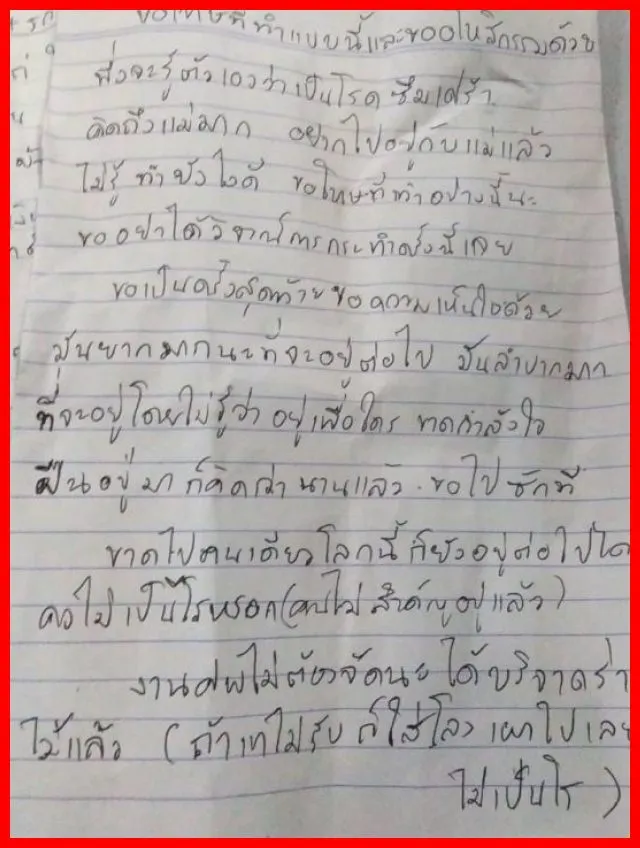 ขอโทษที่ทำแบบนี้และขออโหสิกรรมด้วย
พึ่งจะรู้ตัวเองว่าเป็นโรค ซึมเศร้า
คิดถึงแม่มาก อยากไปอยู่กับแม่แล้ว
ไม่รู้ ทำยังไงดี ขอโทษที่ทำอย่างนี้นะ
ขออย่าได้วิจารณ์การกระทำครั้งนี้เลย
ขอเป็นครั้งสุดท้าย ขอความเห็นใจด้วย
มันยากมากนะที่จะอยู่ต่อไป มันลำบากมาก
ที่จะอยู่โดยไม่รู้ว่า อยู่เพื่อใคร ขาดกำลังใจ
ฝืนอยู่มา ก็คิดว่า นานแล้ว ขอไปซักที
ขาดไปคนเดียวโลกนี้ก็ยังอยู่ต่อไปได้
คงไม่เป็นไรหรอก (คนไม่สำคัญอยู่แล้ว)
งานศพไม่ต้องจัดนะ ได้บริจาคร่า
ไว้แล้ว (ถ้าเขาไม่รับ ก็ใส่โลง เผาไปเลย
ไม่เป็นไร)